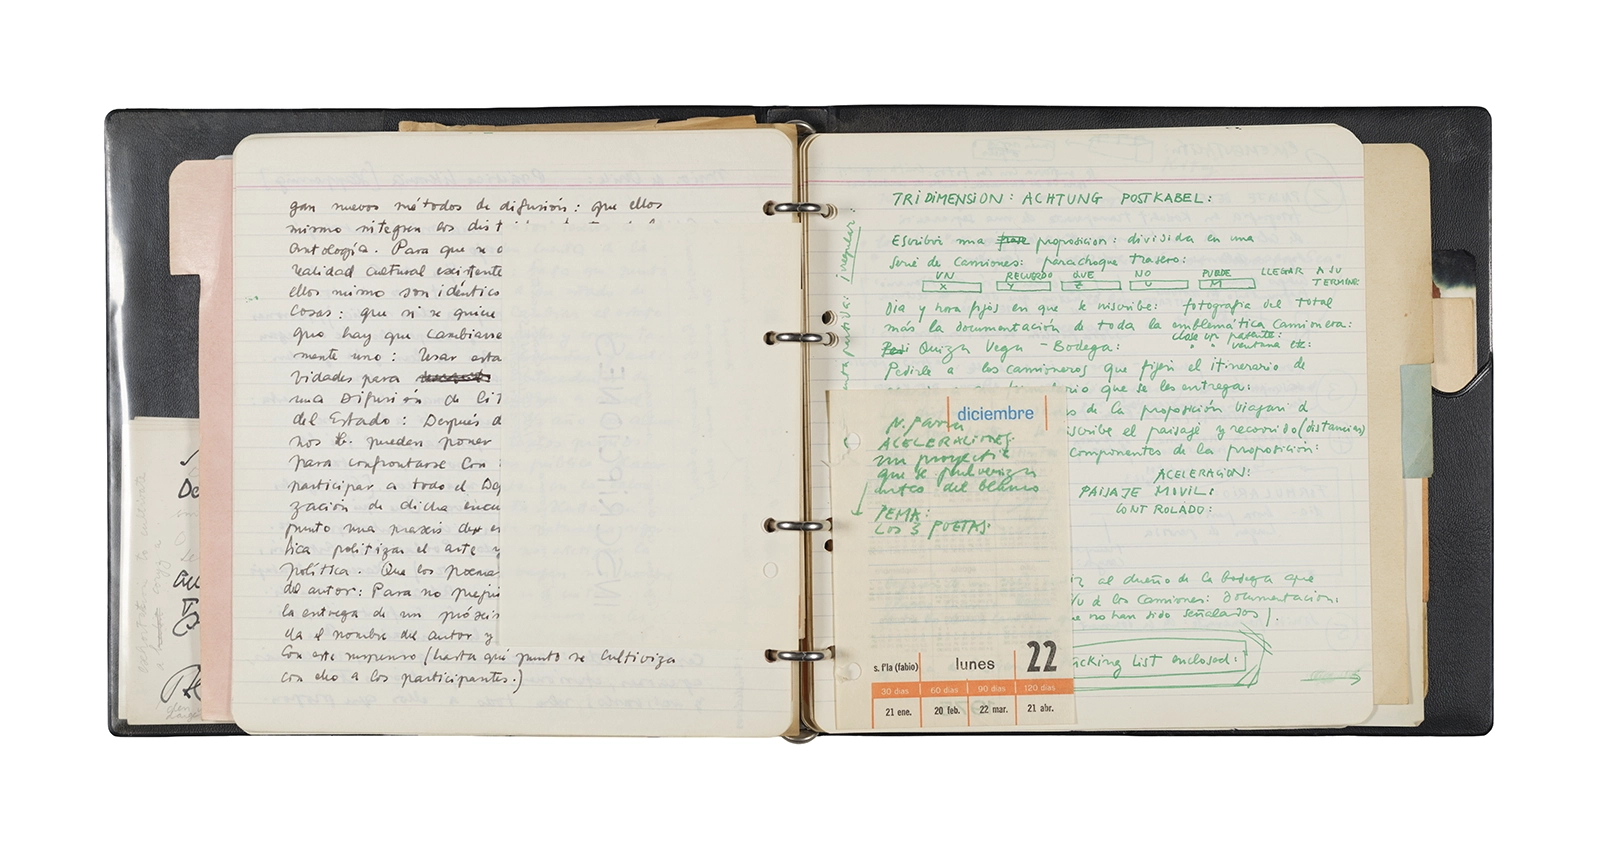 gan nuevos métodos de difusión: que ellos
mismo integren los dist
antología. Para que
realidad cultural existente
ellos mismo son idéntico
cosas: que si se quie
que hay que cambiarse
mente uno: Usar esta
vidades para
una Difusión de Lit
del Estado: Después d
nos pueden poner
para confrontarse con
participar a todo el De
zación de dicha encu
punto una praxis
tica politizar el arte y
política. Que los poema
del autor: Para no preju
la entrega de un
da el nombre del autor y
con este suspenso (hasta qué punto se cultiviza
con ello a los participantes.)
TRIDIMENSION: ACHTUNG POSTKABEL:
Escribir una proposicion: dividida en una
serie de camiones: parachoque trasero:
UN RECUERDO QUE NO PUEDE LLEGAR A SU
X Y Z U M TERMINE:
Dia y hora fijos en que se inscribe: fotografia del total
más la documentación de toda la emblemática camionera:
close up patente:
" ventana etc:
Quiza Vega - Bodega:
Pedirle a los camioneros que fijen el itinerario de
que se les entrega:
s de la proposición viajan d
scribe el paisaje y recorrido (distancias)
componentes de la proposición:
ACELERACION:
PAISAJE MOVIL:
CONTROLADO:
al dueño de la bodega que
de los camiones: documentacion.
e no han sido señalados).
acking List enclosed:
irregular:
diciembre
N. Parra
ACELERACIONES:
un proyectil
que se pulveriza
antes del blanco
TEMA:
LOS 3 POETAS:
s. f'la (fabio) lunes 22
30 dias 60 dias 90 dias 120 dias
21 ene. 20 feb. 22 mar. 21 abr.
INSCRIPCIONES
De